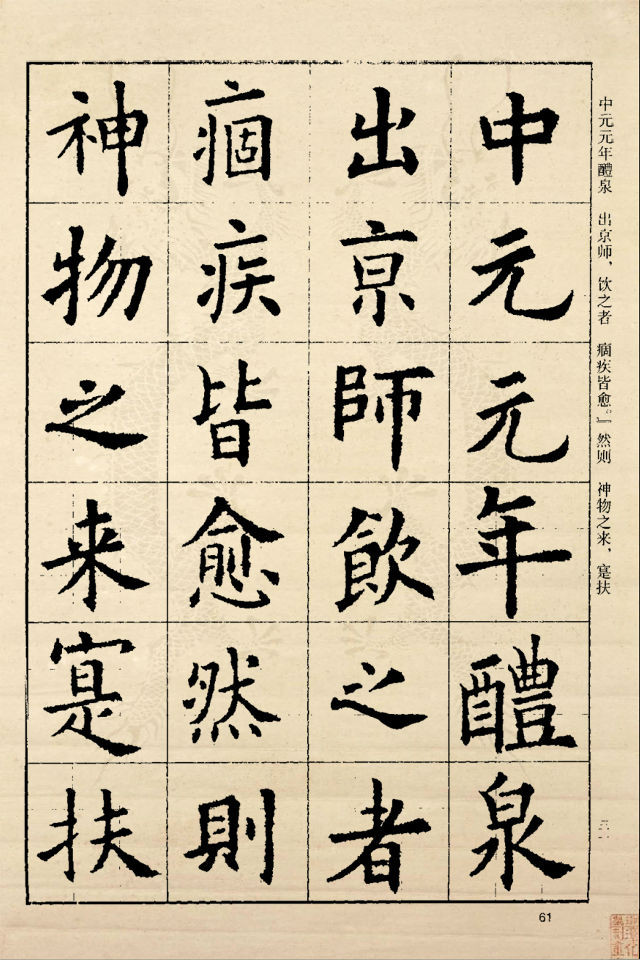 中元元年醴泉
出京師飲之者
痼疾皆愈然則
神物之来寔扶
中元元年醴泉 出京师，饮之者 痼疾皆愈。』然则 神物之来，寔扶
61